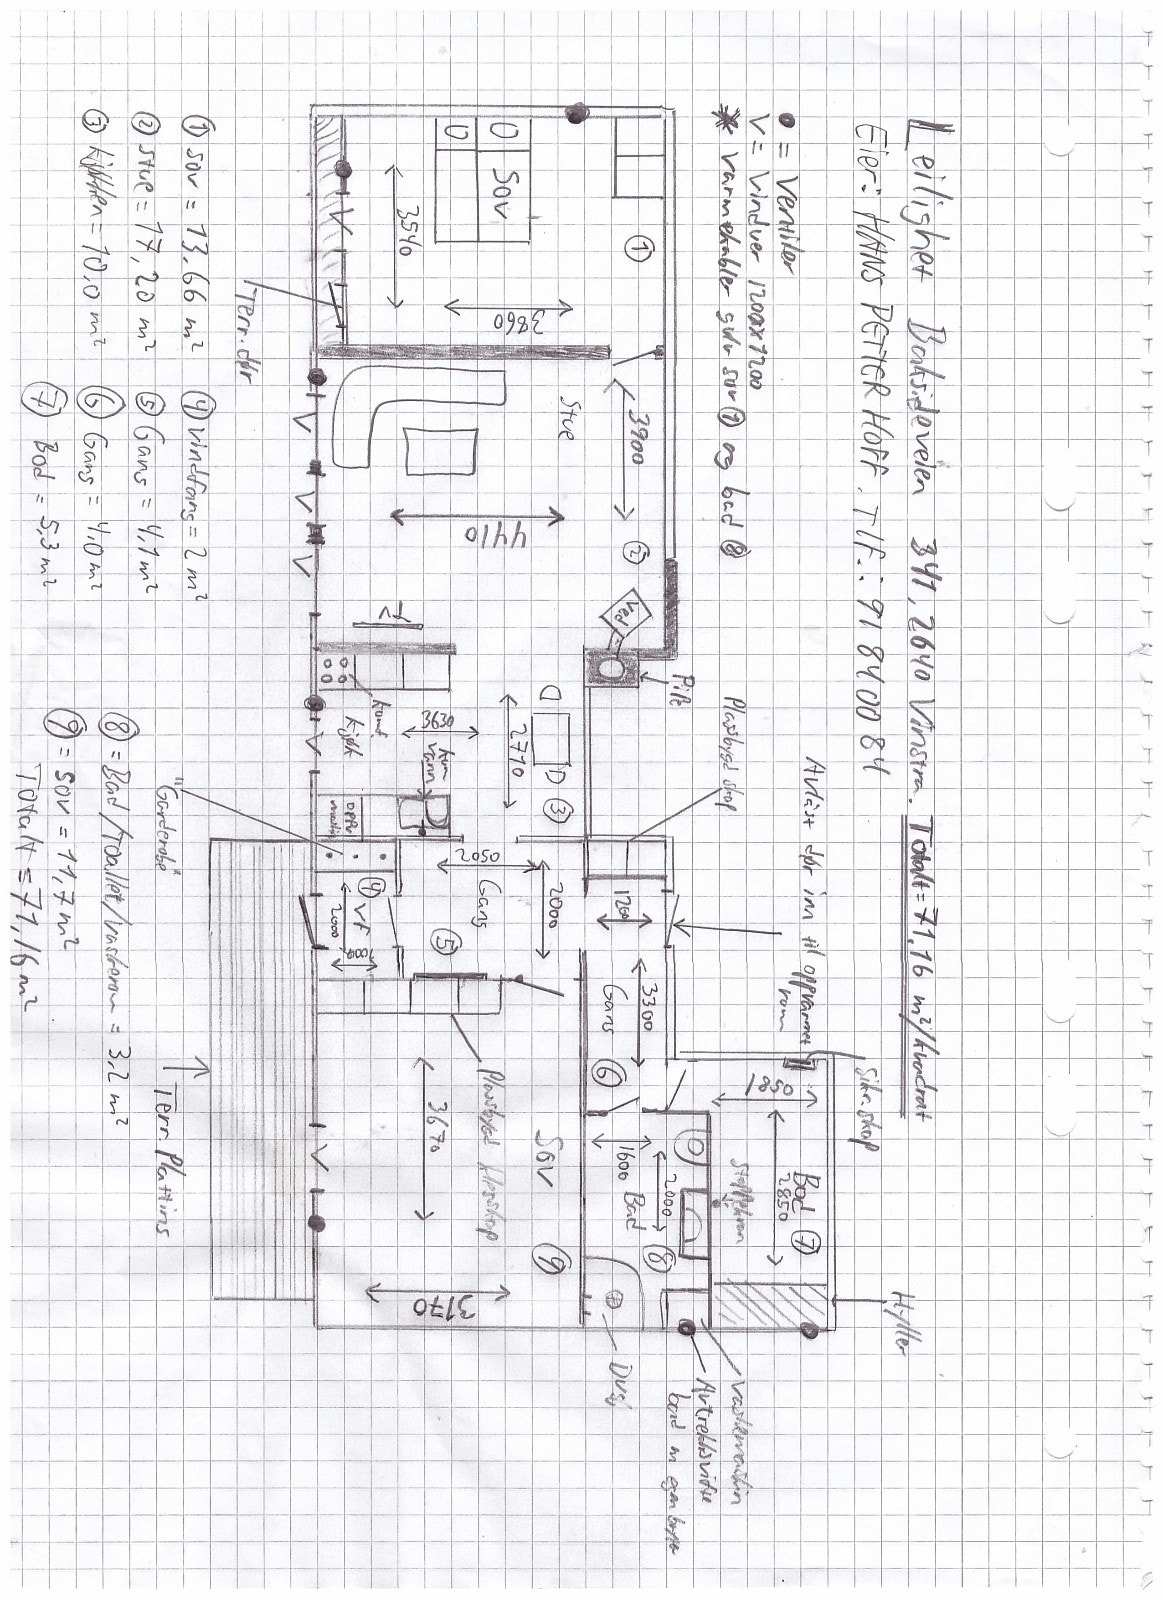 Leilighet Baksideveien 341, 2640 Vinstra. Totalt = 71,16 m²/kvadrat
Eier: HANS PETTER HOFF. TLF.: 91840084
● = Ventiler
V = Vinduer 1200x1200
* varmekabler gulv sov ① og bad ⑧
①
Sov
3540
3860
Terr. dør
Stue
3900
4410
②
Ved
TV
Pipe
Plassbygd skap
Avlåst dør inn til oppvarmet rom
Komf.
Kjøk
3630
2710
Kum
vann
Oppv
maskin
③
"Garderobe"
④
VF
2000
2050
Gang
2000
⑤
1200
3300
Gang
⑥
Plassbygd Klesskap
3670
Sov
3170
⑨
1600
Bad
2000
⑧
Dusj
1850
Sikr. skap
Bod
2850
⑦
Stoppekran
Hyller
Vaskemaskin
Avtrekksvifte
Terr. Platting
① Sov = 13,66 m²
② Stue = 17,20 m²
③ Kjøkken = 10,0 m²
④ Vindfang = 2 m²
⑤ Gang = 4,1 m²
⑥ Gang = 4,0 m²
⑦ Bod = 5,3 m²
⑧ = Bad/toalett/vaskerom = 3,2 m²
⑨ = Sov = 11,7 m²
Totalt = 71,16 m²